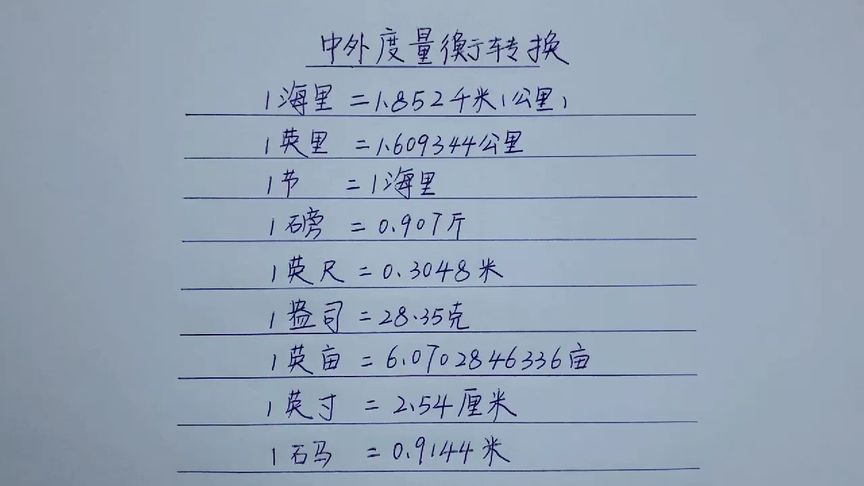 中外度量衡转换
1海里=1.852千米(公里)
1英里=1.609344公里
1节=1海里
1磅=0.907斤
1英尺=0.3048米
1盎司=28.35克
1英亩=6.0702846336亩
1英寸=2.54厘米
1码=0.9144米